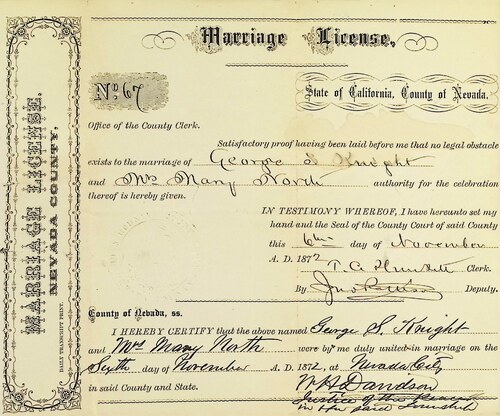 Marriage License,
No. 67
State of California, County of Nevada.
Office of the County Clerk.
Satisfactory proof having been laid before me that no legal obstacle
exists to the marriage of George S Knight
and Mrs Mary North authority for the celebration
thereof is hereby given.
IN TESTIMONY WHEREOF, I have hereunto set my
hand and the Seal of the County Court of said County
this 6th day of November
A. D. 1872
T. C. Plunkett Clerk.
By Deputy.
County of Nevada, ss.
I HEREBY CERTIFY that the above named George S. Knight
and Mrs Mary North were by me duly united in marriage on the
Sixth day of November A. D. 1872, at Nevada City
in said County and State.
W H Davidson
Justice of the Peace
in
MARRIAGE LICENSE.
NEVADA COUNTY.
DAILY TRANSCRIPT PRINT.